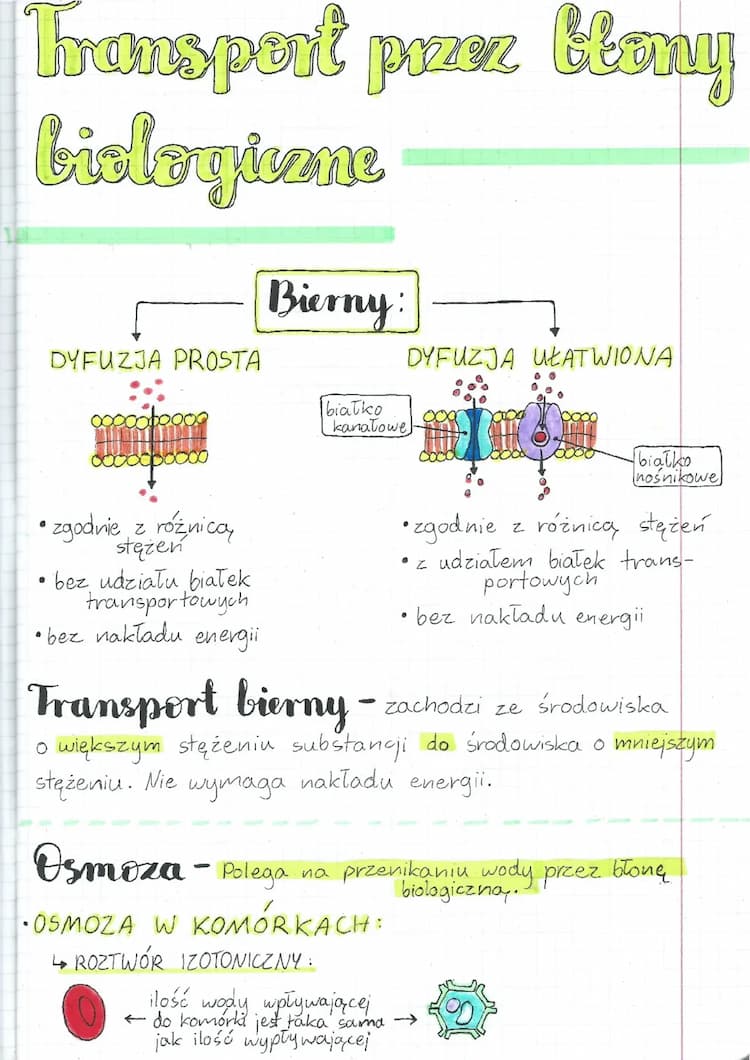 Transport przez błony
biologiczne
Bierny:
DYFUZJA PROSTA
DYFUZJA UŁATWIONA
białko
kanałowe
białko
nośnikowe
• zgodnie z różnicą
stężeń
• bez udziału białek
transportowych
• bez nakładu energii
• zgodnie z różnicą stężeń
• z udziałem białek trans-
portowych
• bez nakładu energii
Transport bierny - zachodzi ze środowiska
o większym stężeniu substancji do środowiska o mniejszym
stężeniu. Nie wymaga nakładu energii.
Osmoza - Polega na przenikaniu wody przez błonę
biologiczną.
• OSMOZA W KOMÓRKACH:
↳ ROZTWÓR IZOTONICZNY:
ilość wody wpływającej
← do komórki jest taka sama →
jak ilość wypływającej